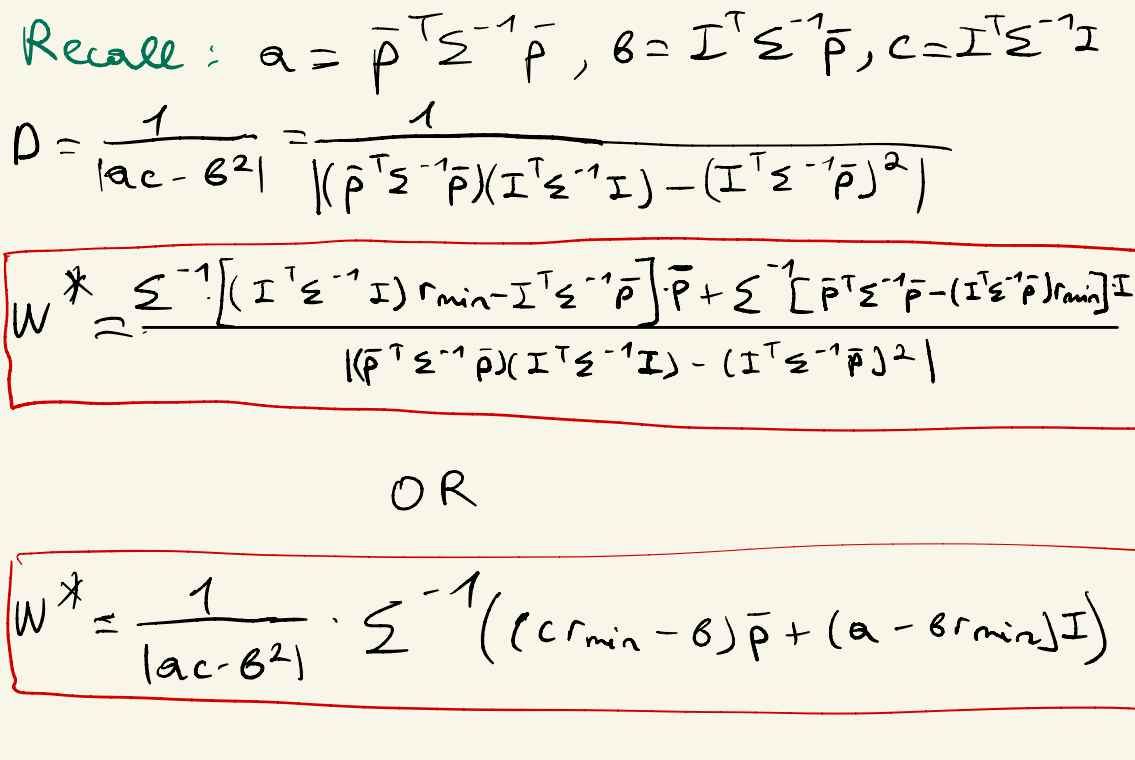 Recall: a = p̄ᵀΣ⁻¹p̄, b = IᵀΣ⁻¹p̄, c = IᵀΣ⁻¹I
D = 1/|ac - b²| = 1/|(p̄ᵀΣ⁻¹p̄)(IᵀΣ⁻¹I) - (IᵀΣ⁻¹p̄)²|
W* = (Σ⁻¹·[(IᵀΣ⁻¹I) r_min - IᵀΣ⁻¹p̄]·p̄ + Σ⁻¹[p̄ᵀΣ⁻¹p̄ - (IᵀΣ⁻¹p̄) r_min]·I) / |(p̄ᵀΣ⁻¹p̄)(IᵀΣ⁻¹I) - (IᵀΣ⁻¹p̄)²|
OR
W* = 1/|ac - b²| · Σ⁻¹((c r_min - b) p̄ + (a - b r_min) I)